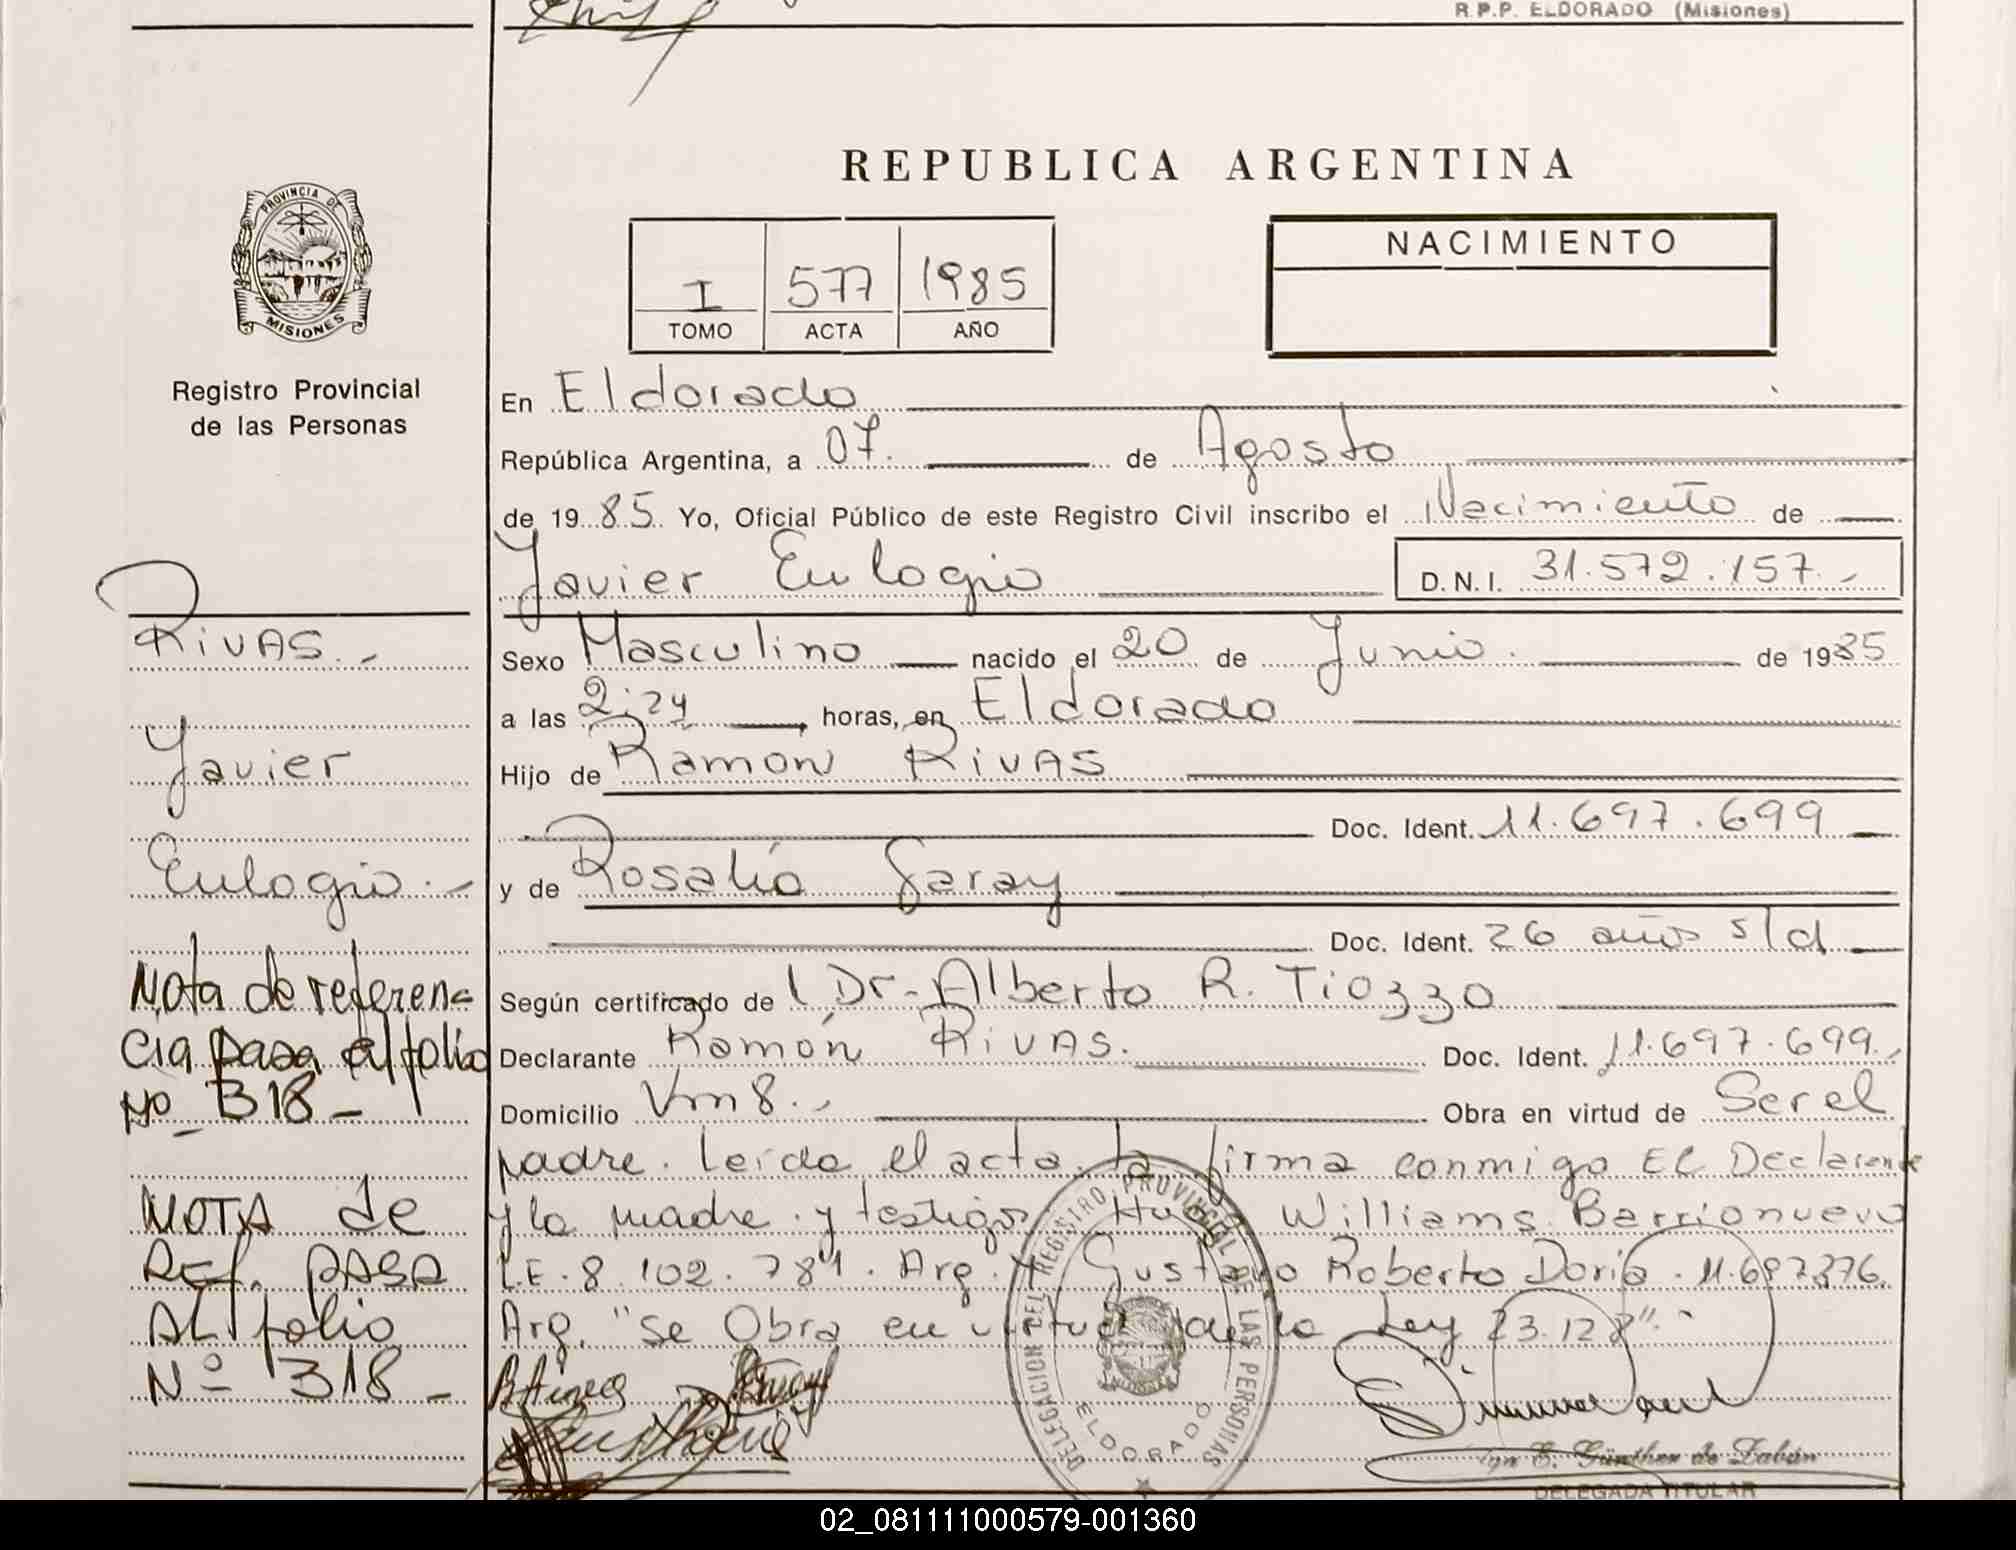 R.P.P. ELDORADO (Misiones)
REPUBLICA ARGENTINA
PROVINCIA DE
MISIONES
Registro Provincial
de las Personas
I 577 1985
TOMO ACTA AÑO
NACIMIENTO
En Eldorado
República Argentina, a 07 de Agosto
de 1985 Yo, Oficial Público de este Registro Civil inscribo el Nacimiento de
Javier Eulogio D.N.I. 31.572.157.-
Sexo Masculino nacido el 20 de Junio. de 1985
a las 2:24 horas, en Eldorado
Hijo de Ramón Rivas
Doc. Ident. 11.697.699
y de Rosalía Garay
Doc. Ident. 26 años s/d
Según certificado de Dr. Alberto R. Tiozzo
Declarante Ramón Rivas. Doc. Ident. 11.697.699.
Domicilio Vm 8.- Obra en virtud de Ser el
padre. Leída el acta la firma conmigo El Declarante
y la madre y testigos Williams Barrionuevo
L.E. 8.102.781. Arg. y Gustavo Roberto Doria. 11.697376.
Arg. "Se Obra en virtud de la Ley 23.128".
RIVAS.-
Javier
Eulogio.-
Nota de referen-
cia pasa al folio
Nº 318-
NOTA de
Ref. PASA
AL folio
Nº 318-
DELEGACION DEL REGISTRO PROVINCIAL DE LAS PERSONAS
ELDORADO
E. Günther de Zabán
DELEGADA TITULAR
02_081111000579-001360